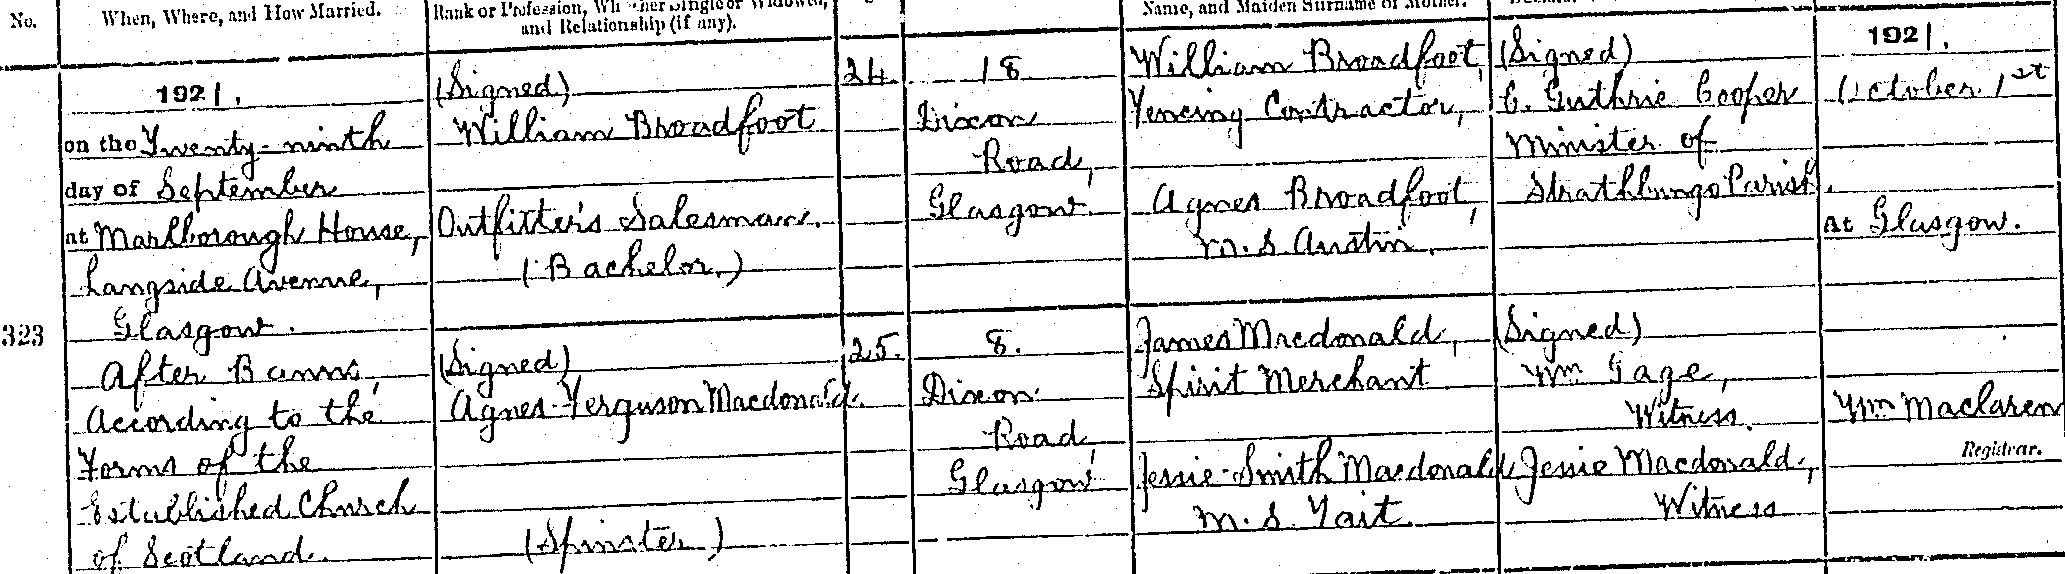 No.
When, Where, and How Married.
Rank or Profession, Whether Single or Widowed,
and Relationship (if any).
Name, and Maiden Surname of Mother.
1921.
on the Twenty-ninth
day of September
at Marlborough House,
Langside Avenue,
Glasgow.
323
After Banns,
According to the
Forms of the
Established Church
of Scotland.
(Signed)
William Broadfoot
Outfitter's Salesman.
(Bachelor.)
(Signed)
Agnes Ferguson Macdonald.
(Spinster)
24.
25.
18
Dixon
Road,
Glasgow.
8.
Dixon
Road,
Glasgow
William Broadfoot,
Fencing Contractor,
Agnes Broadfoot,
M.S. Austin.
James Macdonald,
Spirit Merchant
Jessie Smith Macdonald
M.S. Tait.
(Signed)
C. Guthrie Cooper
Minister of
Strathbungo Parish.
(Signed)
Wm Gage,
Witness.
Jessie Macdonald,
Witness
1921.
October 1st
At Glasgow.
Wm Maclaren
Registrar.